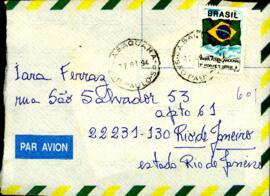 BRASIL
Iara Ferraz
rua São Salvador 53
apto 61
601
22231-130 Rio de Janeiro
estado Rio de Janeiro
PAR AVION